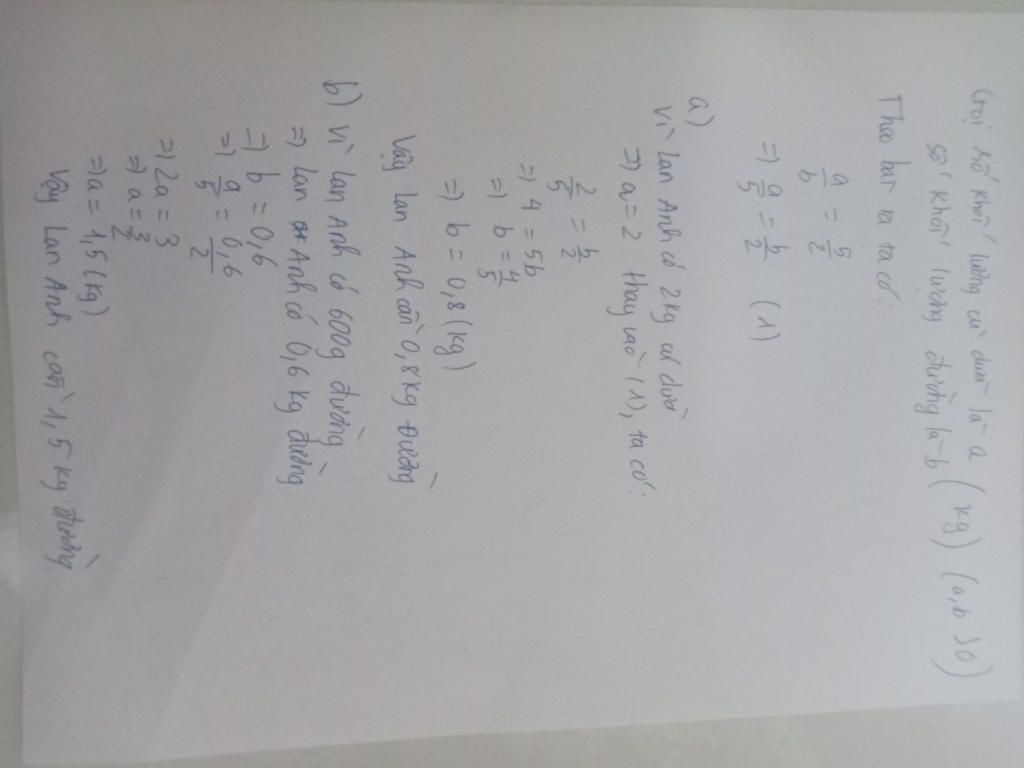 Gọi số khối lượng cùi dừa là a (kg) (a,b >0)
số khối lượng đường là b
Theo bài ra ta có:
a/b = 5/2
=> a/5 = b/2 (1)
a)
Vì Lan Anh có 2kg cùi dừa
=> a=2 Thay vào (1), ta có:
2/5 = b/2
=> 4 = 5b
=> b = 4/5
=> b = 0,8 (kg)
Vậy Lan Anh cần 0,8kg đường
b) Vì Lan Anh có 600g đường
=> Lan Anh có 0,6 kg đường
=> b = 0,6
=> a/5 = 0,6/2
=> 2a = 3
=> a = 3/2
=> a = 1,5 (kg)
Vậy Lan Anh cần 1,5 kg đường